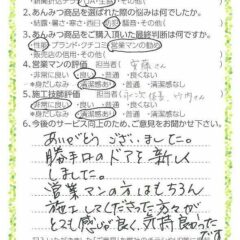 2.あんみつ商品を選ばれた際の悩みは何でしたか。
・結露・暑さ・寒さ・西日・防犯・騒音・その他(
3.あんみつ商品をご購入頂いた最終判断は何ですか。
・性能・ブランド・クチコミ・営業マンの勧め
・販売店の信用・その他(
4.営業マンの評価 担当者( 安藤さん
・非常に良い・良い・普通・良くない
*身だしなみ ・清潔感あり・普通・清潔感なし
5.施工技術評価 担当者(
・非常に良い・良い・普通・良くない
*身だしなみ ・清潔感あり・普通・清潔感なし
6.今後のサービス向上のため、ご意見をお聞かせ下さい
ありがとうございました。
勝手口のドアを新しく
しました。
営業マンの方はもちろん
施工してくださった方々が
とても感じが良く、気持良かった
です